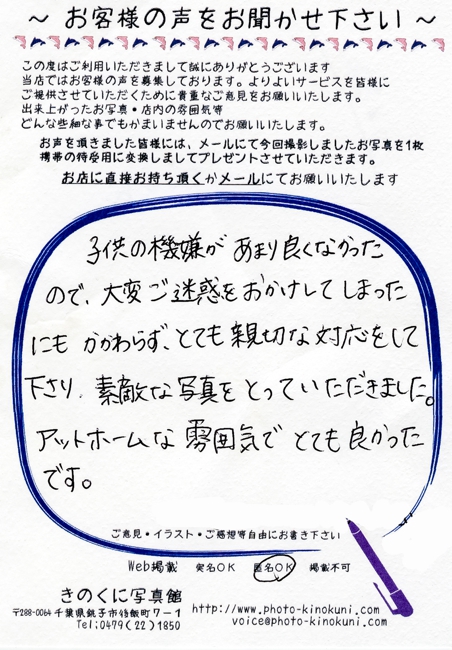 ～ お客様の声をお聞かせ下さい ～
この度はご利用いただきまして誠にありがとうございます
当店ではお客様の声を募集しております。よりよいサービスを皆様に
ご提供させていただくために貴重なご意見をお願いいたします。
出来上がったお写真・店内の雰囲気等
どんな些細な事でもかまいませんのでお願いいたします。
お声を頂きました皆様には、メールにて今回撮影しましたお写真を1枚
携帯の待受用に変換しましてプレゼントさせていただきます。
お店に直接お持ち頂くかメールにてお願いいたします
子供の機嫌が あまり良くなかった
ので、大変ご迷惑をおかけしてしまった
にも かかわらず、とても親切な対応をして
下さり、素敵な写真をとっていただきました。
アットホームな雰囲気で とても良かった
です。
ご意見・イラスト・ご感想等自由にお書き下さい
Web掲載 実名OK 匿名OK 掲載不可
きのくに写真館
〒288-0064 千葉県銚子市錦飯町7－1
Tel:0479(22)1850
http://www.photo-kinokuni.com
voice@photo-kinokuni.com